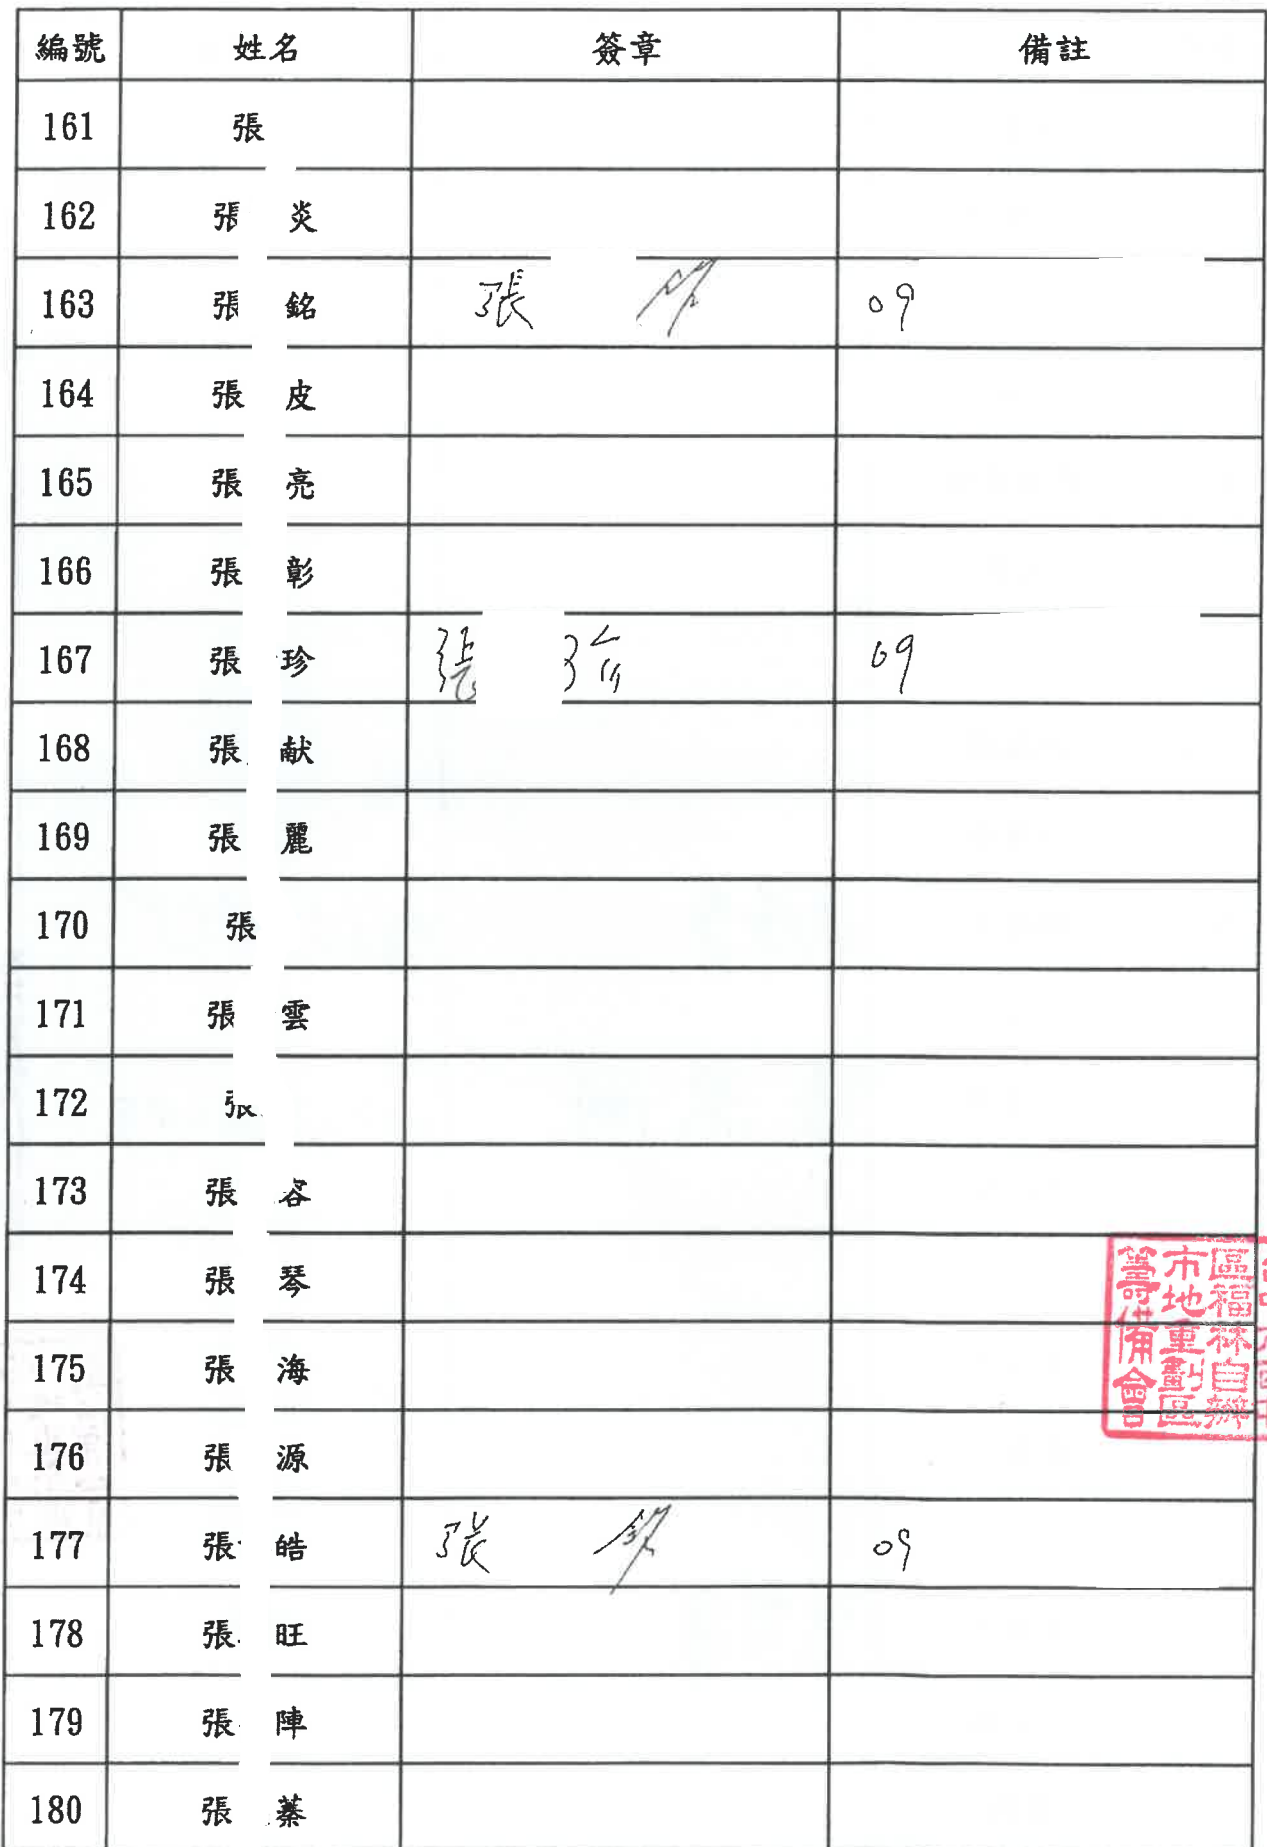 編號 姓名 簽章 備註
161 張
162 張 炎
163 張 銘 張 09
164 張 皮
165 張 亮
166 張 彰
167 張 珍 張 09
168 張 献
169 張 麗
170 張
171 張 雲
172 張
173 張 容
174 張 琴
175 張 海
176 張 源
177 張 皓 張 09
178 張 旺
179 張 陣
180 張 蓁
區福林自辦
市地重劃區
籌備會